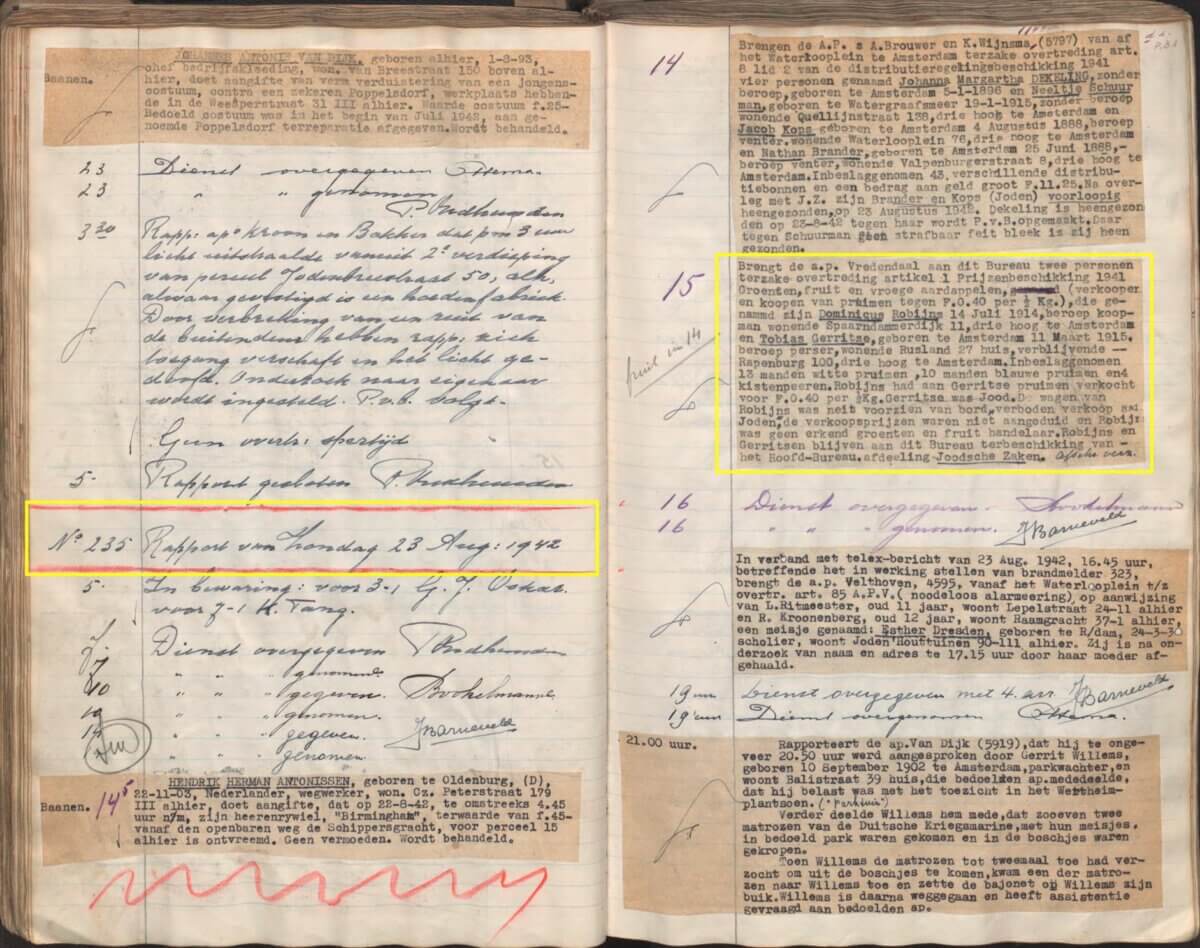 JOHANNES ANTONIE VAN DIJK, geboren alhier, 1-8-93,
Baanen. chef bedrijfskleeding, won. van Breestraat 150 boven al-
hier, doet aangifte van verm.verduistering van een jongens-
costuum, contra een zekeren Poppelsdorf, werkplaats hebben-
de in de Weesperstraat 31 III alhier. Waarde costuum f.25-
Bedoeld costuum was in het begin van Juli 1942, aan ge-
noemde Poppelsdorf terreparatie afgegeven.Wordt behandeld.
23 Dienst overgegeven
23 " " genomen
3 30 Rapp: apn Kroon en Bakker dat pm 3 uur
licht uitstraalde vanuit 2e verdieping
van perceel Jodenbreestraat 50, alh.
alwaar gevestigd is een hoedenfabriek.
Door verbreking van een ruit van
de buitendeur hebben rapp: zich
toegang verschaft en het licht ge-
doofd. Onderzoek naar eigenaar
wordt ingesteld. P.v.b. volgt.
Geen overtr: spertijd
5. Rapport gesloten
No 235 Rapport van Zondag 23 Aug: 1942
5. In bewaring: voor 3-1 G. J.
voor 7-1 K. Tang.
7 Dienst overgegeven
7 " " genomen
10 " " gegeven. Bockelmann
" " genomen. JBarneveld
" " gegeven
" " genomen
HENDRIK HERMAN ANTONISSEN, geboren te Oldenburg, (D),
Baanen. 14 5 22-11-03, Nederlander, wegwerker, won. Cz. Peterstraat 179
III alhier, doet aangifte, dat op 22-8-42, te omstreeks 4.45
uur n/m, zijn heerenrywiel, "Birmingham", terwaarde van f.45-
vanaf den openbaren weg de Schippersgracht, voor perceel 15
alhier is ontvreemd. Geen vermoeden. Wordt behandeld.
14 Brengen de A.P. s A.Brouwer en K.Wijnsma,(5797) van af
het Waterlooplein te Amsterdam terzake overtreding art.
8 lid 2 van de distributieregelingbeschikking 1941
vier personen genaamd Johanna Margartha DEKELING,zonder
beroep,geboren te Amsterdam 5-1-1896 en Neeltje Schuur
man,geboren te Watergraafsmeer 19-1-1915,zonder beroep
wonende Quellijnstraat 138,drie hoog te Amsterdam en
Jacob Kops geboren te Amsterdam 4 Augustus 1888,beroep
venter,wonende Waterlooplein 76,drie hoog te Amsterdam
en Nathan Brander,geboren te Amsterdam 25 Juni 1888,-
beroep venter,wonende Valpenburgerstraat 8,drie hoog te
Amsterdam.Inbeslaggenomen 43,verschillende distribu-
tiebonnen en een bedrag aan geld groot F.11.25.Na over-
leg met J.Z. zijn Brander en Kops (Joden) voorloopig
heengezonden,op 23 Augustus 1942. Dekeling is heengezon
den op 23-8-42 tegen haar wordt P.v.B.opgemaakt.Daar
tegen Schuurman geen strafbaar feit bleek is zij heen
gezonden.
15 Brengt de a.p. Vredendaal aan dit Bureau twee personen
terzake overtreding artikel 1 Prijzenbeschikking 1941
Groenten,fruit en vroege aardappelen, (verkoopen
en koopen van pruimen tegen F.0.40 per ½ Kg.),die ge-
nammd zijn Dominicus Robijns 14 Juli 1914,beroep koop-
man wonende Spaarndammerdijk 11,drie hoog te Amsterdam
en Tobias Gerritse,geboren te Amsterdam 11 Maart 1915.
beroep perser,wonende Rusland 27 huis,verblijvende --
Rapenburg 100,drie hoog te Amsterdam.Inbeslaggenomen
13 manden witte pruimen ,10 manden blauwe pruimen en4
kistenpeeren.Robijns had aan Gerritse pruimen verkocht
voor F.0.40 per ½Kg.Gerritse was Jood.De wagen van
Robijns was neit voorzien van bord,verboden verkoop aan
Joden,de verkoopsprijzen waren niet aangeduid en Robijns
was geen erkend groenten en fruit handelaar.Robijns en
Gerritsen blijven aan dit Bureau terbeschikking van -
het Hoofd-Bureau.afdeeling Joodsche Zaken.
16 Dienst overgegeven - Bockelmann
16 " " genomen. JBarneveld
In verband met telex-bericht van 23 Aug. 1942, 16.45 uur,
betreffende het in werking stellen van brandmelder 323,
brengt de a.p. Velthoven, 4595, vanaf het Waterlooplein t/z
overtr. art. 85 A.P.V.( noodeloos alarmeering), op aanwijzing
van L.Ritmeester, oud 11 jaar, woont Lepelstraat 24-11 alhier
en R. Kroonenberg, oud 12 jaar, woont Raamgracht 37-1 alhier,
een meisje genaamd: Esther Dresden, geboren te R/dam, 24-3-30
scholier, woont Joden Houttuinen 90-111 alhier. Zij is na on-
derzoek van naam en adres te 17.15 uur door haar moeder af-
gehaald.
19 uur Dienst overgegeven met 4. arr. JBarneveld
19 uur Dienst overgenomen
21.00 uur. Rapporteert de ap.Van Dijk (5919),dat hij te onge-
veer 20.50 uur werd aangesproken door Gerrit Willems,
geboren 10 September 1902 te Amsterdam,parkwachter,en
woont Balistraat 39 huis,die bedoelden ap.mededeelde,
dat hij belast was met het toezicht in het Wertheim-
plantsoen.("Parktuin")
Verder deelde Willems hem mede,dat zooeven twee
matrozen van de Duitsche Kriegsmarine,met hun meisjes.
in bedoeld park waren gekomen en in de boschjes waren
gekropen.
Toen Willems de matrozen tot tweemaal toe had ver-
zocht om uit de boschjes te komen,kwam een der matro-
zen naar Willems toe en zette de bajonet op Willems zijn
buik.Willems is daarna weggegaan en heeft assistentie
gevraagd aan bedoelden ap.